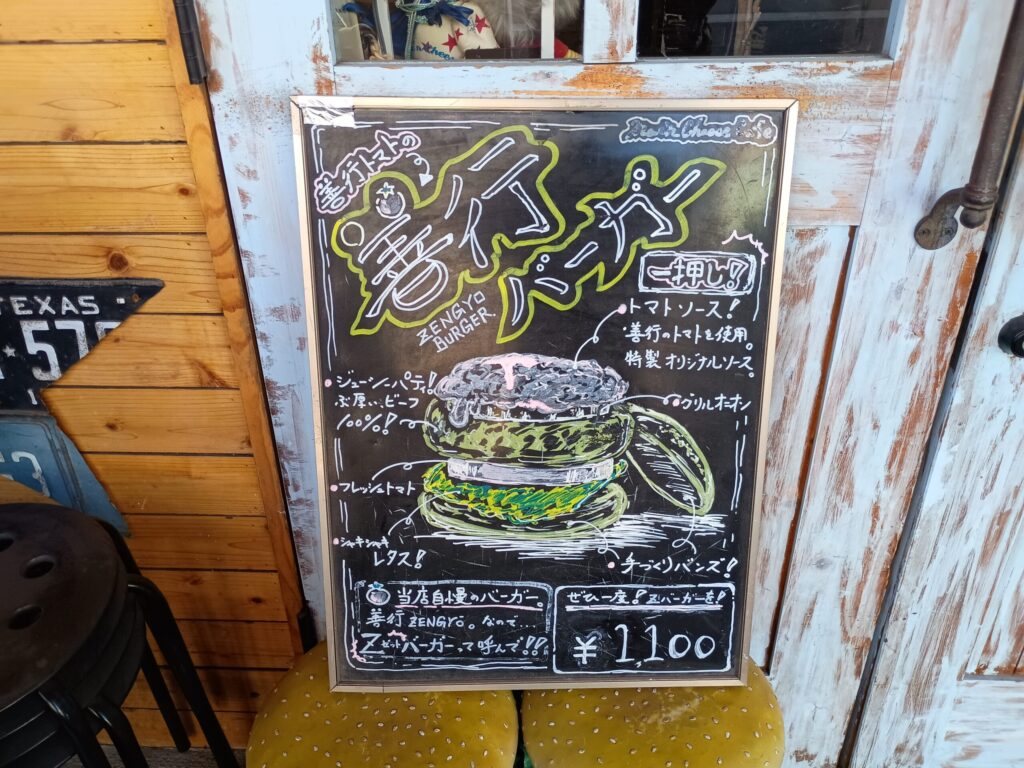 善行トマトの
善行
バーガー
ZENGYO
BURGER
一押し!
トマトソース!
善行のトマトを使用。
特製オリジナルソース。
ジューシーパティ!
ぶ厚い、ビーフ
100%!
グリルオニオン
フレッシュトマト
シャキシャキ
レタス!
手づくりバンズ!
当店自慢のバーガー。
善行 ZENGYO。なので…
Zゼットバーガーって呼んで!!
ぜひ一度!Zバーガーを!
¥1,100
TEXAS
57